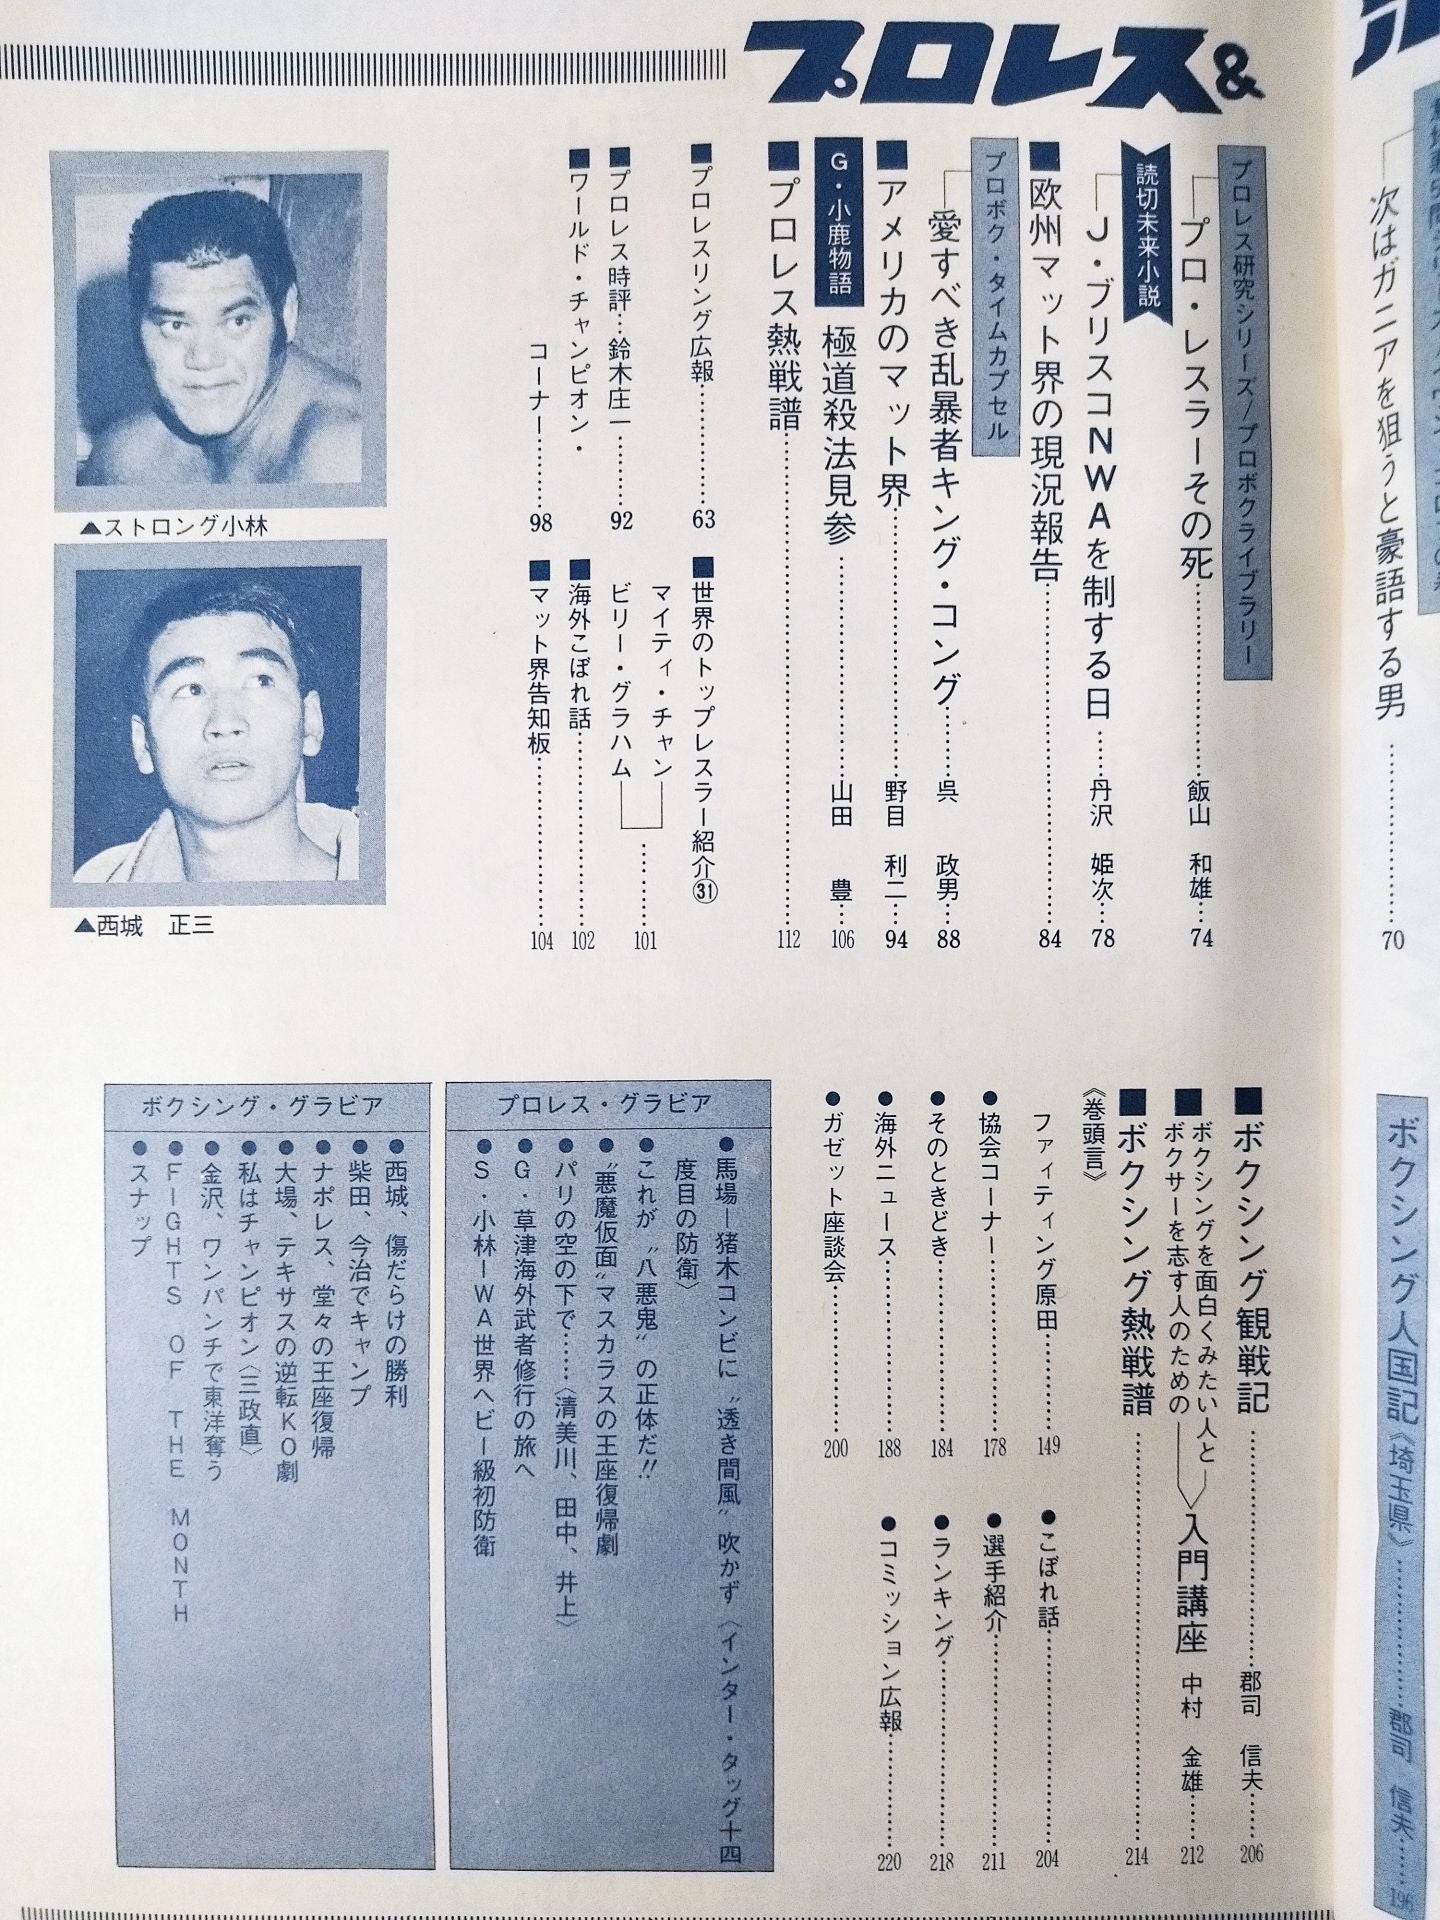 次はガニアを狙うと豪語する男……………70
ボクシング人国記《埼玉県》……………郡司 信夫……196
プロレス&
プロレス研究シリーズ/プロボクライブラリー
プロ・レスラーその死……………飯山 和雄…74
読切未来小説
J・ブリスコNWAを制する日……丹沢 姫次…78
■欧州マット界の現況報告……………84
プロボク・タイムカプセル
愛すべき乱暴者キング・コング……呉 政男…88
■アメリカのマット界……………野目 利二…94
G・小鹿物語
極道殺法見参……………山田 豊…106
■プロレス熱戦譜……………112
■プロレスリング広報…………63
■プロレス時評…鈴木庄一……92
■ワールド・チャンピオン・
コーナー……98
■世界のトップレスラー紹介㉛
マイティ・チャン
ビリー・グラハム
……101
■海外こぼれ話…………102
■マット界告知板…………104
▲ストロング小林
▲西城 正三
■ボクシング観戦記……………郡司 信夫……206
■ボクシングを面白くみたい人と
ボクサーを志す人のための
入門講座 中村 金雄……212
■ボクシング熱戦譜……………214
《巻頭言》
ファイティング原田………149
●協会コーナー…………178
●そのときどき…………184
●海外ニュース…………188
●ガゼット座談会…………200
●こぼれ話…………204
●選手紹介…………211
●ランキング…………218
●コミッション広報…………220
プロレス・グラビア
●馬場―猪木コンビに〝透き間風〟吹かず〈インター・タッグ十四
度目の防衛〉
●これが〝八悪鬼〟の正体だ!!
●〝悪魔仮面〟マスカラスの王座復帰劇
●パリの空の下で……〈清美川、田中、井上〉
●G・草津海外武者修行の旅へ
●S・小林―WA世界ヘビー級初防衛
ボクシング・グラビア
●西城、傷だらけの勝利
●柴田、今治でキャンプ
●ナポレス、堂々の王座復帰
●大場、テキサスの逆転KO劇
●私はチャンピオン〈三政直〉
●金沢、ワンパンチで東洋奪う
●FIGHTS OF THE MONTH
●スナップ